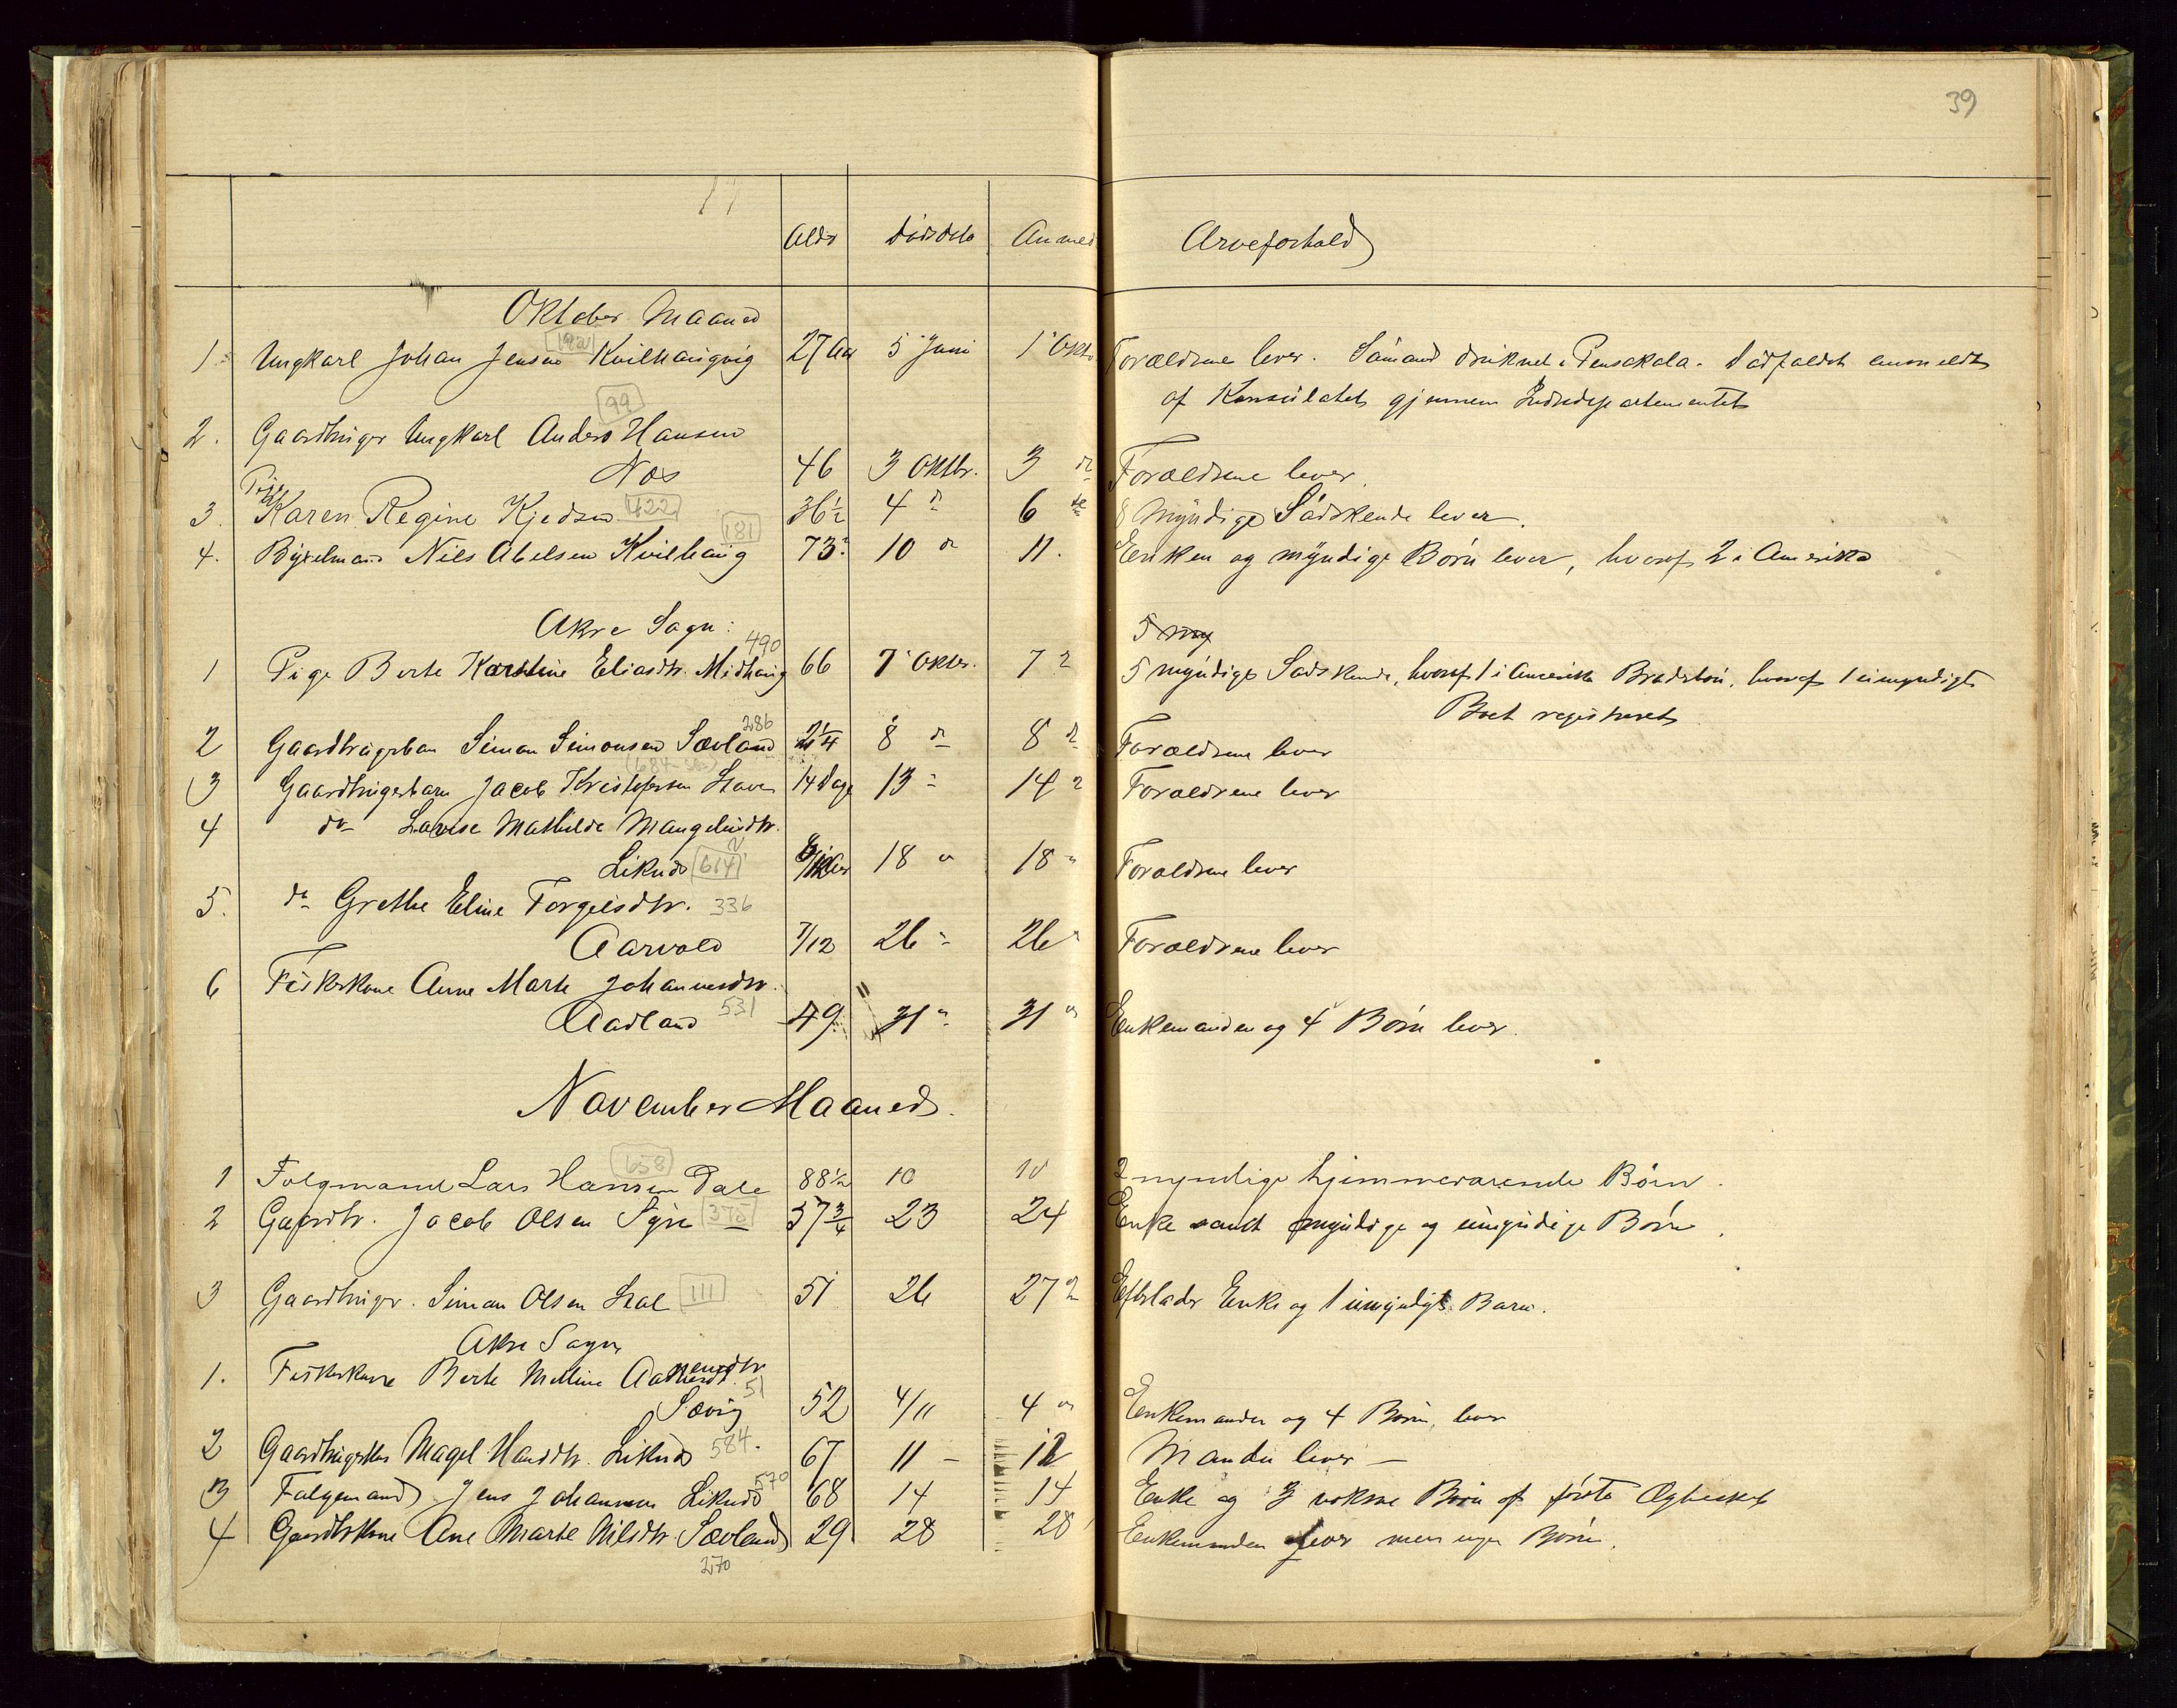 39
Alder Dødsdato Anmeld Arveforhold
Oktober Maaned
192
1. Ungkarl Johan Jensen Kvilhaugvig 27 Aar 5 Juni 1 Oktr. Forældrene lever. Sømand druknet i Pensakola. Dødsfaldet anmeldt
af Konsulatet gjennem Indredepartementet
99
2. Gaardbruger Ungkarl Anders Hansen
Nes 46 3 Oktbr. 3 do Forældrene lever.
Pige
3. Karen Regine Kjedsen 422 36½ 4 do 6 do 8 Myndige Sødskende lever.
181
4. Bygselmand Niels Abelsen Kvilhaug 73 10 do 11. Enken og myndige Børn lever, hvoraf 2 i Amerika
Akre Sogn: 5 my
490
1 Pige Berte Karstine Eliasdtr. Midhaug 66 7 Oktbr. 7 5 myndige Sødskende, hvoraf 1 i Amerika Brødrebørn, hvoraf 1 umyndigt
Boet registreret
286
2 Gaardbrugerbarn Simon Simonsen Sævland 2¼ 8 do 8 do Forældrene lever
3 Gaardbrugerbarn Jacob Kristofersen Stava 14 Dage 13 14 Forældrene lever
4 do Lovise Mathilde Mangelsdtr.
Liknes 614 18 18 Forældrene lever
5. do Grethe Eline Torgeisdtr. 336
Aarvold 7/12 26 26 Forældrene lever
6 Fiskerkone Anne Marte Johannesdtr.
Aadland 531 49 31 31 Enkemanden og 4 Børn lever.
November Maaned.
658
1 Folgmand Lars Hansen Dale 88½ 10 10 2 myndige hjemmeværende Børn.
2 Gaardbr. Jacob Olsen Syre 375 57¾ 23 24 Enke samt myndige og umyndige Børn.
3 Gaardbruger. Simon Olsen Stol 111 51 26 27 Efterlader Enke og 1 umyndigt Barn.
Akre Sogn
1. Fiskerkone Berte Malline
51
Sævig 52 4/11 4 Enkemanden og 4 Børn lever
2 Gaardbrugerkone Magel Hansdtr. Liknes 584. 67 11 – 12 Manden lever –
570
3 Folgemand Jens Johannesen Liknes 68 14 14 Enke og 3 voksne Børn af første Ægteskab
4 Gaardbrkone Ane Marte Nilsdtr. Sævland 29 28 28 Enkemanden lever men ingen Børn.
270